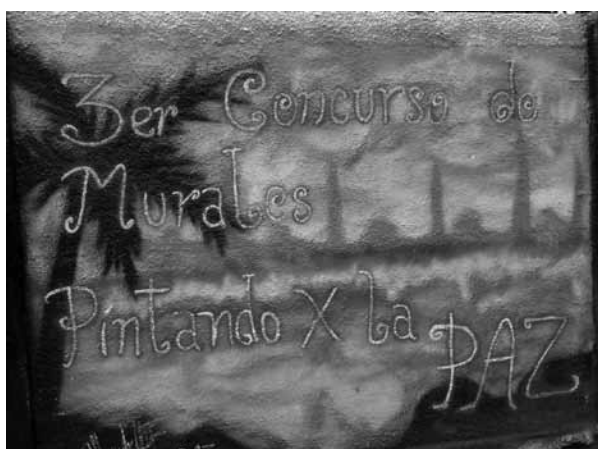 3er Concurso de
Murales
Pintando X la
PAZ